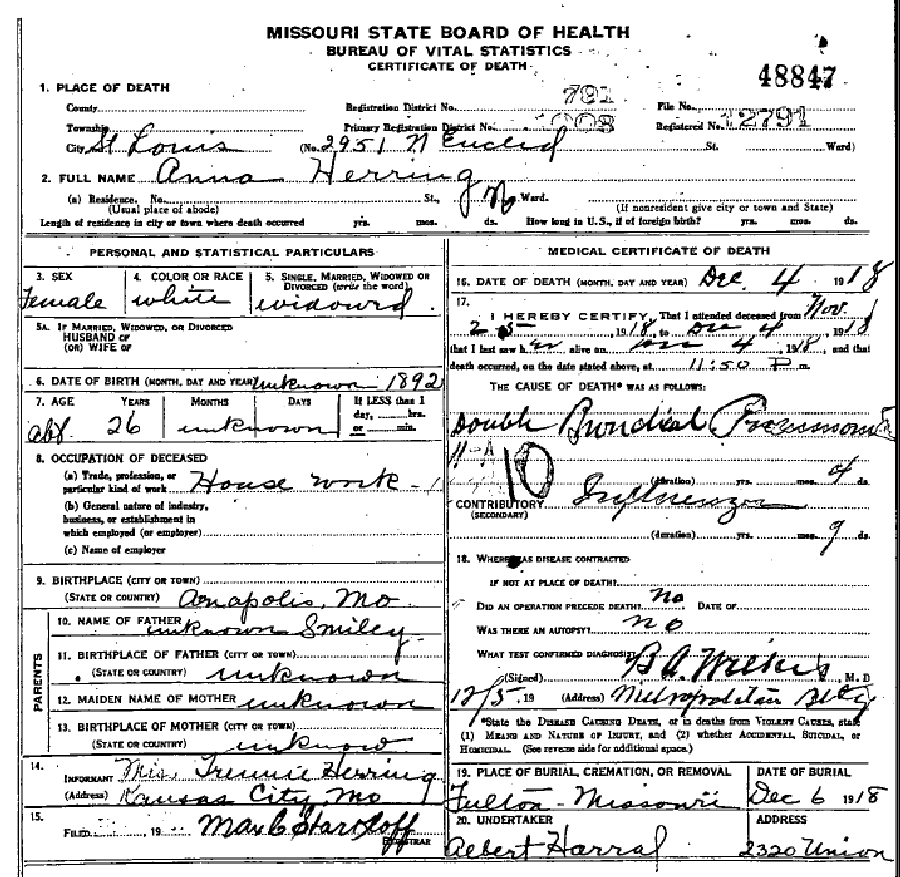 MISSOURI STATE BOARD OF HEALTH
BUREAU OF VITAL STATISTICS
CERTIFICATE OF DEATH
48847
1. PLACE OF DEATH
County
Registration District No. 791
File No.
Township
Primary Registration District No. 1003
Registered No. 12791
City St Louis (No. 2951 N Euclid St. Ward)
2. FULL NAME Anna Herring
(a) Residence. No. St., Ward.
(Usual place of abode) (If nonresident give city or town and State)
Length of residence in city or town where death occurred yrs. mos. ds. How long in U.S., if of foreign birth? yrs. mos. ds.
PERSONAL AND STATISTICAL PARTICULARS
3. SEX 4. COLOR OR RACE 5. SINGLE, MARRIED, WIDOWED OR
DIVORCED (write the word)
Female white widowed
5A. IF MARRIED, WIDOWED, OR DIVORCED
HUSBAND OF
(OR) WIFE OF
6. DATE OF BIRTH (MONTH, DAY AND YEAR) unknown 1892
7. AGE YEARS MONTHS DAYS If LESS than 1
day, hrs.
or min.
abt. 26 unknown
8. OCCUPATION OF DECEASED
(a) Trade, profession, or
particular kind of work House work - 1
(b) General nature of industry,
business, or establishment in
which employed (or employer)
(c) Name of employer
9. BIRTHPLACE (CITY OR TOWN)
(STATE OR COUNTRY) Anapolis, Mo
PARENTS
10. NAME OF FATHER
unknown Smiley
11. BIRTHPLACE OF FATHER (CITY OR TOWN)
(STATE OR COUNTRY) unknown
12. MAIDEN NAME OF MOTHER unknown
13. BIRTHPLACE OF MOTHER (CITY OR TOWN)
(STATE OR COUNTRY) unknow
14.
INFORMANT Mrs. Herring
(Address) Kansas City, Mo
15.
FILED 19 Max C Starkloff
REGISTRAR
MEDICAL CERTIFICATE OF DEATH
16. DATE OF DEATH (MONTH, DAY AND YEAR) Dec 4 1918
17.
I HEREBY CERTIFY, That I attended deceased from Nov.
25 1918, to Dec 4, 1918
that I last saw her alive on Dec 4 1918, and that
death occurred, on the date stated above, at 11:50 P m.
THE CAUSE OF DEATH* WAS AS FOLLOWS:
Double Bronchial Pneumonia
11-A
10
(duration) yrs. mos. 4 ds.
CONTRIBUTORY Influenza
(SECONDARY)
(duration) yrs. mos. 9 ds.
18. WHERE WAS DISEASE CONTRACTED
IF NOT AT PLACE OF DEATH?
DID AN OPERATION PRECEDE DEATH? No DATE OF
WAS THERE AN AUTOPSY? no
WHAT TEST CONFIRMED DIAGNOSIS?
(Signed) B A Wilkes M.D
12/5, 19 (Address) Metropolitan Bldg
*State the DISEASE CAUSING DEATH, or in deaths from VIOLENT CAUSES, state
(1) MEANS AND NATURE OF INJURY, and (2) whether ACCIDENTAL, SUICIDAL, or
HOMICIDAL. (See reverse side for additional space.)
19. PLACE OF BURIAL, CREMATION, OR REMOVAL DATE OF BURIAL
Fulton - Missouri Dec 6 1918
20. UNDERTAKER ADDRESS
Albert Harral 2320 Union